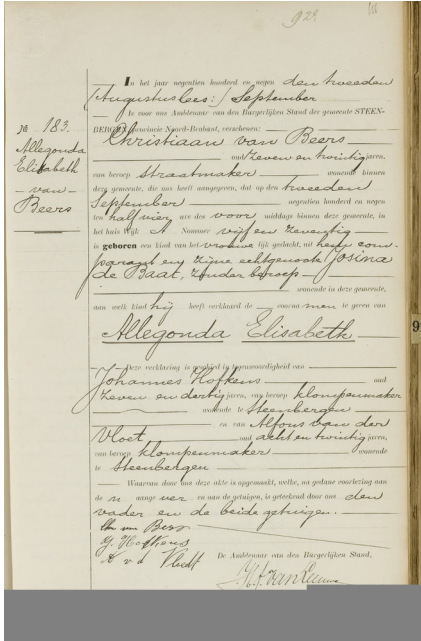 928
In het jaar negentien honderd en negen den tweeden
(Augustus lees:) September
is voor ons Ambtenaar van den Burgerlijken Stand der gemeente STEEN-
BERGEN, provincie Noord-Brabant, verschenen:
Christiaan van Beers
oud zeven en twintig jaren,
van beroep straatmaker wonende binnen
deze gemeente, die ons heeft aangegeven, dat op den tweeden
September negentien honderd en negen
ten half vier ure des voor middags binnen deze gemeente, in
het huis Wijk A Nommer vijf en zeventig
is geboren een kind van het vrouwelijk geslacht, uit hem com-
parant en zijne echtgenoote Josina
de Baat, zonder beroep
wonende in deze gemeente,
aan welk kind hij heeft verklaard de voornamen te geven van
Allegonda Elisabeth
Deze verklaring is geschied in tegenwoordigheid van
Johannes Hofkens oud
zeven en dertig jaren, van beroep klompenmaker
wonende te Steenbergen
en van Alfons van der
Vloet oud acht en twintig jaren,
van beroep klompenmaker wonende
te Steenbergen
Waarvan door ons deze akte is opgemaakt, welke, na gedane voorlezing aan
de n aangever en aan de getuigen, is geteekend door ons den
vader en de beide getuigen.
van Beers
Hofkens
v d Vloedt
De Ambtenaar van den Burgerlijken Stand,
No 183.
Allegonda
Elisabeth
- van -
Beers
9